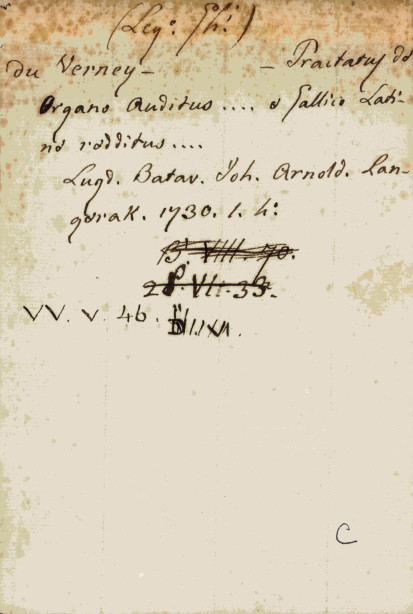 (Leg. Gh.)
du Verney — — Tractatus de
Organo Auditus .... e Gallico Lati-
no redditus ....
Lugd. Batav. Joh. Arnold. Lan-
gerak. 1730. 1. h.
VIII. 70.
28. VII. 33.
VV. v. 46.
C